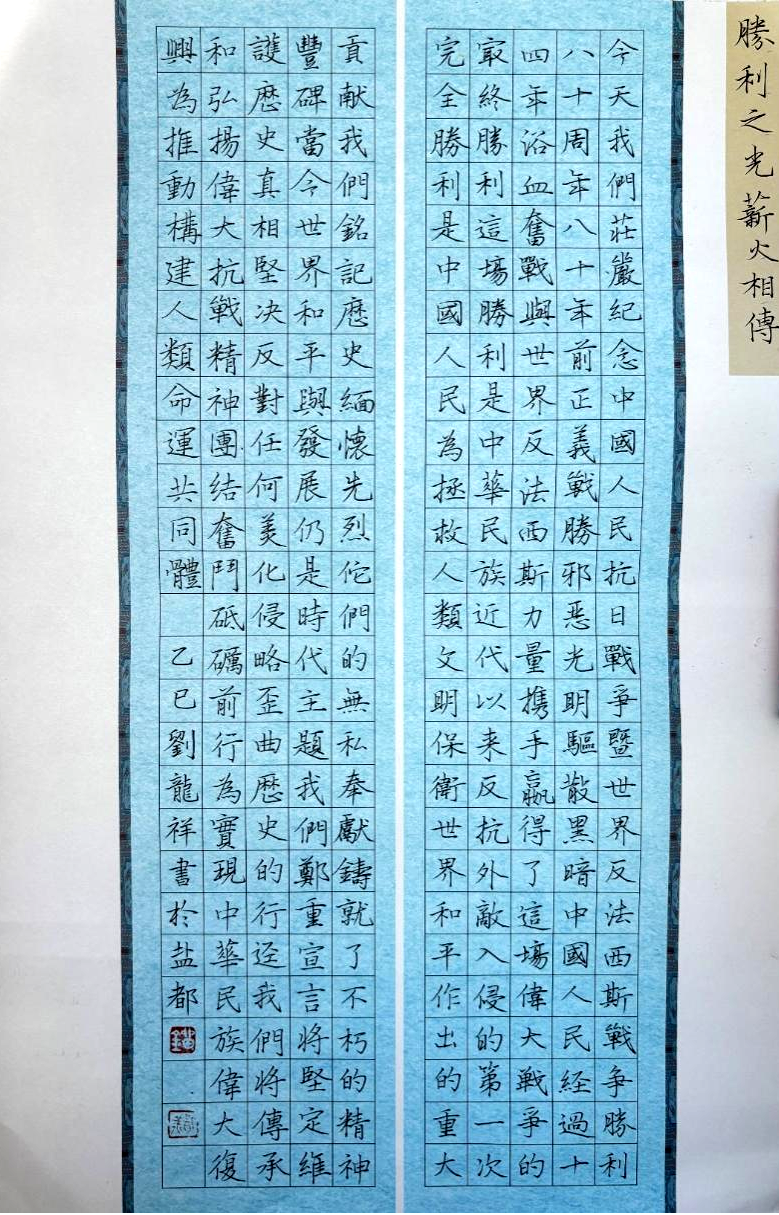 勝利之光薪火相傳
今天我們莊嚴紀念中國人民抗日戰爭暨世界反法西斯戰争勝利
八十周年八十年前正義戰勝邪惡光明驅散黑暗中國人民経過十
四年浴血奮戰與世界反法西斯力量携手贏得了這場偉大戰爭的
最終勝利這場勝利是中華民族近代以来反抗外敵入侵的第一次
完全勝利是中國人民為拯救人類文明保衛世界和平作出的重大
貢献我們銘記歷史緬懷先烈佗們的無私奉獻鑄就了不朽的精神
豐碑當今世界和平與發展仍是時代主題我們鄭重宣言將堅定維
護歷史真相堅决反對任何美化侵略歪曲歷史的行迳我們將傳承
和弘揚偉大抗戰精神團结奮鬥砥礪前行為實現中華民族偉大復
興為推動構建人類命運共同體 乙巳劉龍祥書於盐都